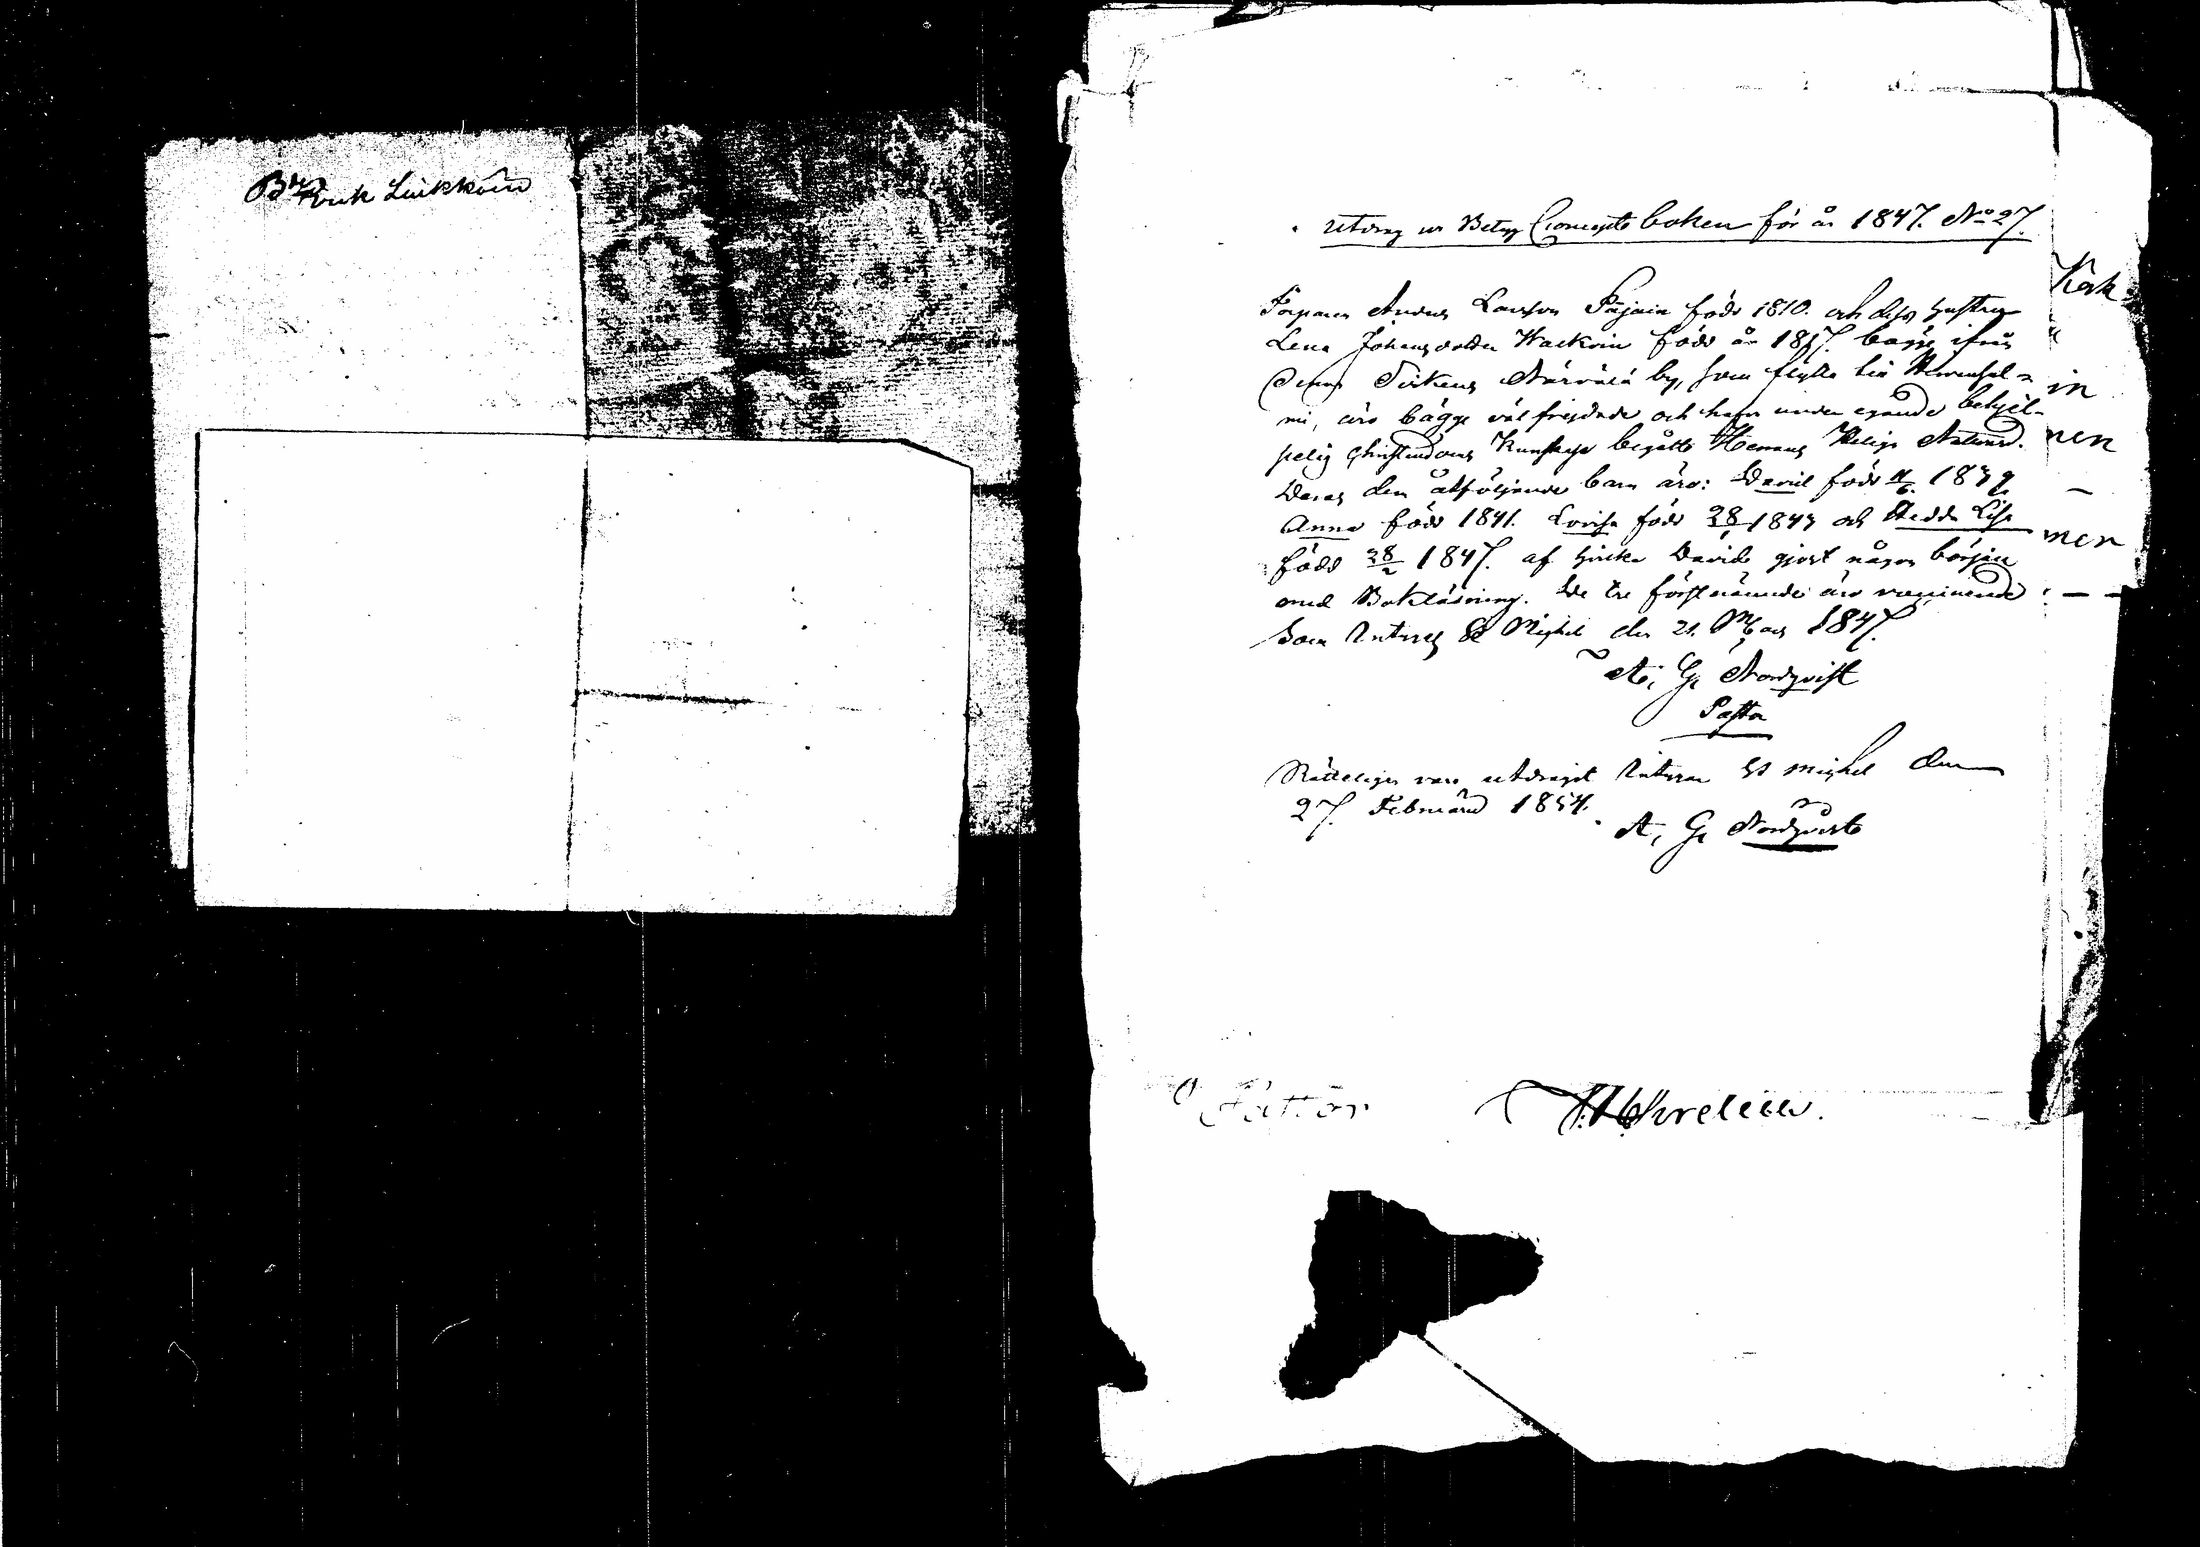 Bd Erik Liukkoin
Utdrag ur Betyg Concepts boken för år 1847. No 27.
Torparen Anders Larsson Pajain född 1810. och dess hustru
Lena Johansdotter Hackoin född år 1817. bägge ifrån
denna Sockens Närvälä by, som flytta till
mi, äro bägge välfrejdade och hafva under egande behjel-
pelig Christendoms Kunskap begått Herrans Heliga Nattvard.
Deras dem åtföljande barn äro: David född 1839
Anna född 1841. Lovisa född 28 1843 och Hedda Lisa
född 28/2 1847. af hvilka David gjort någon början
med Bokläsning. De tre förstnämnde äro vaccinerade
Som intygas St Michel den 21. 1847.
A, G, Nordqvist
Pastor
Rätteligen vara utdraget intygar St Michel den
27. Februarii 1854.
A, G, Nordqvist
Kok
in
nen
nen
Pastor